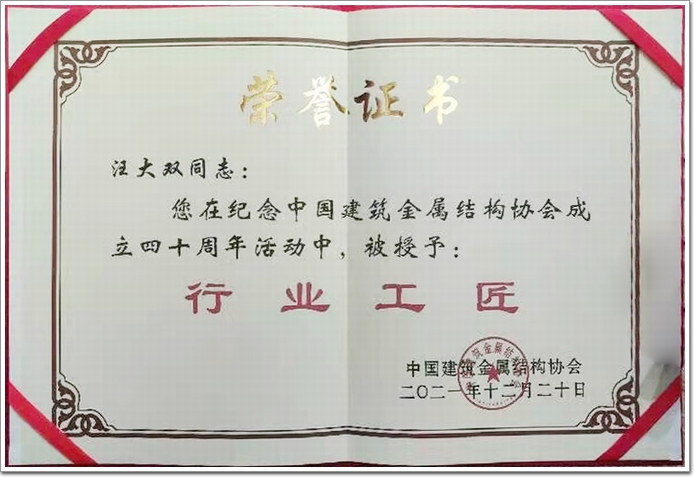 荣誉证书
汪大双同志：
您在纪念中国建筑金属结构协会成
立四十周年活动中，被授予：
行业工匠
中国建筑金属结构协会
二〇二一年十二月二十日